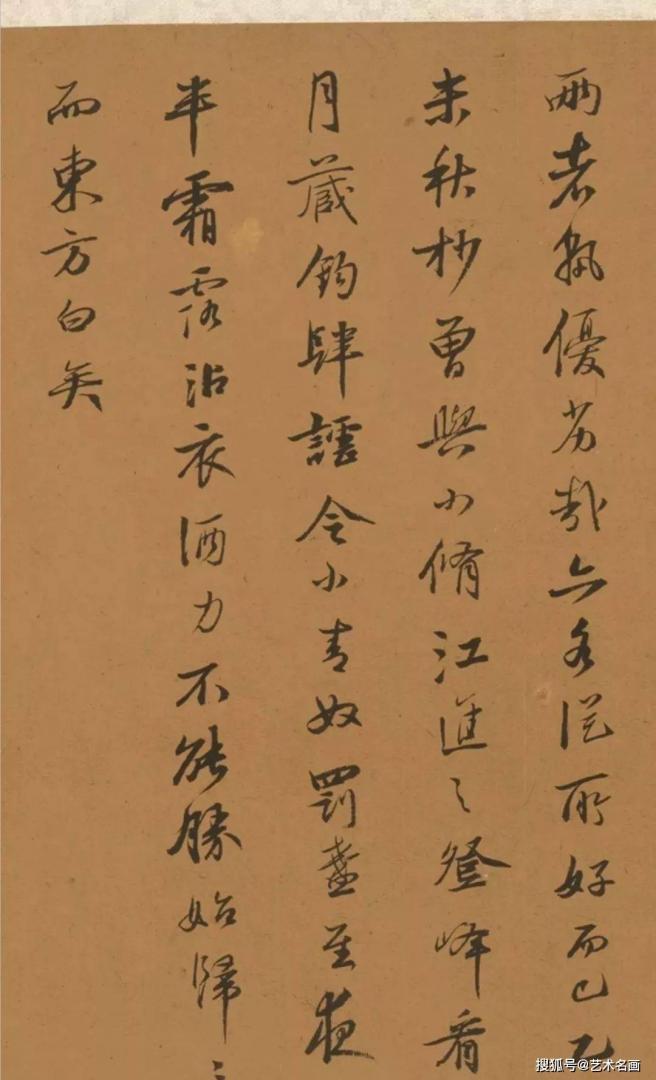 兩者孰優劣哉亦各從所好而已乙
未秋杪曾與小脩江進之登峰看
月藏鉤肆謔令小青奴罰盞至夜
半霜露沾衣酒力不能勝始歸歸
而東方白矣
搜狐号@艺术名画